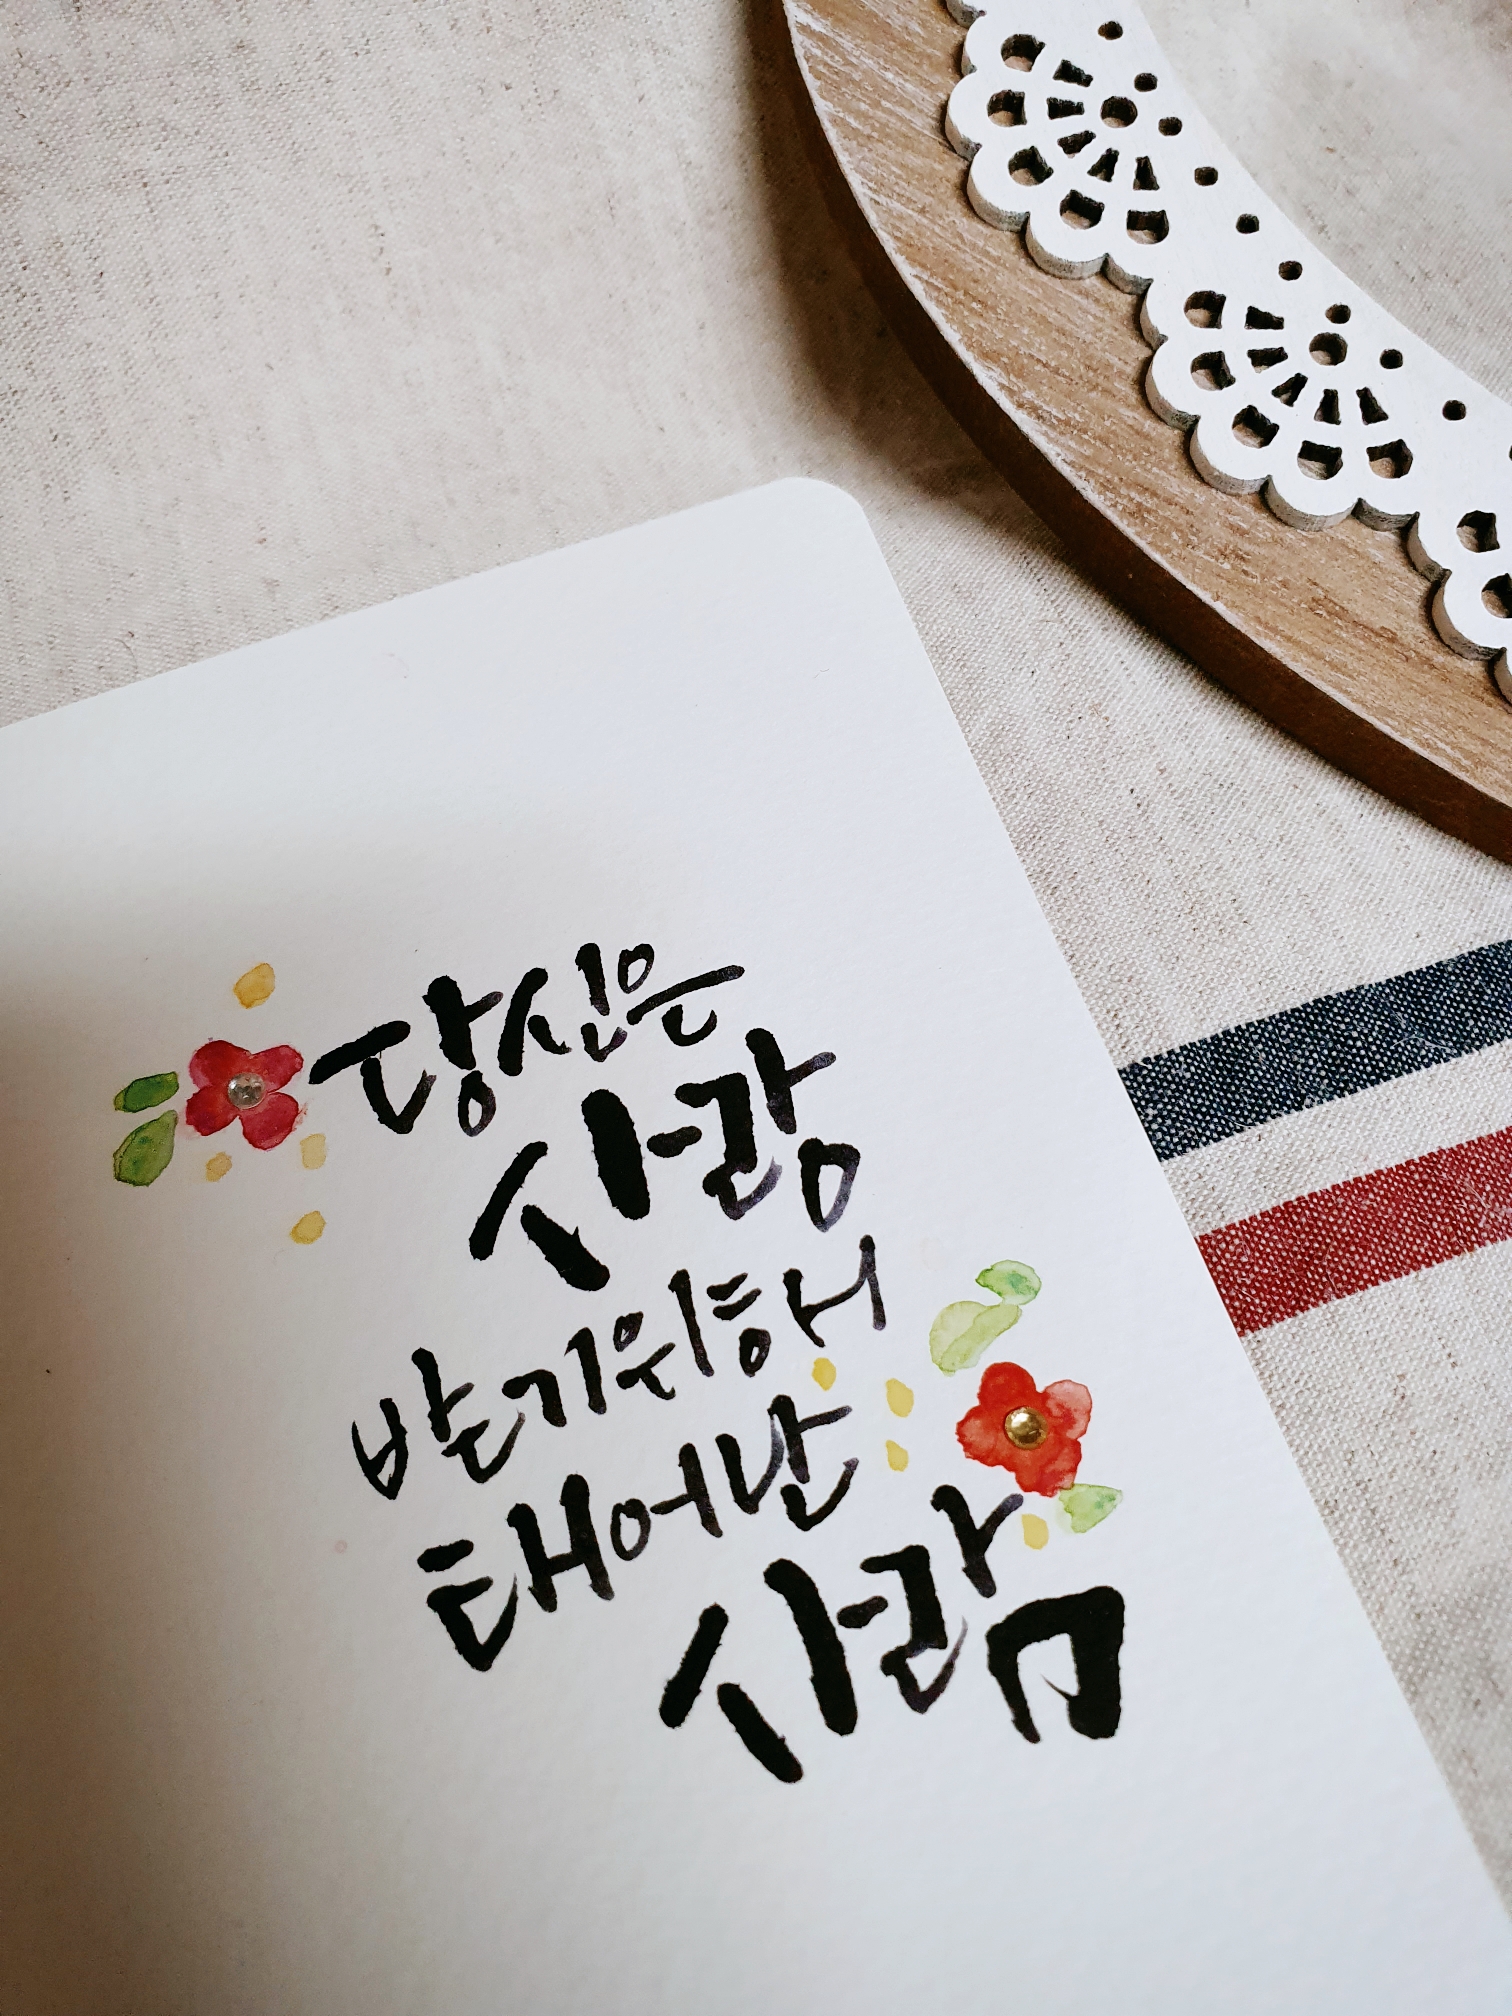 당신은
사랑
받기위해
태어난
사람